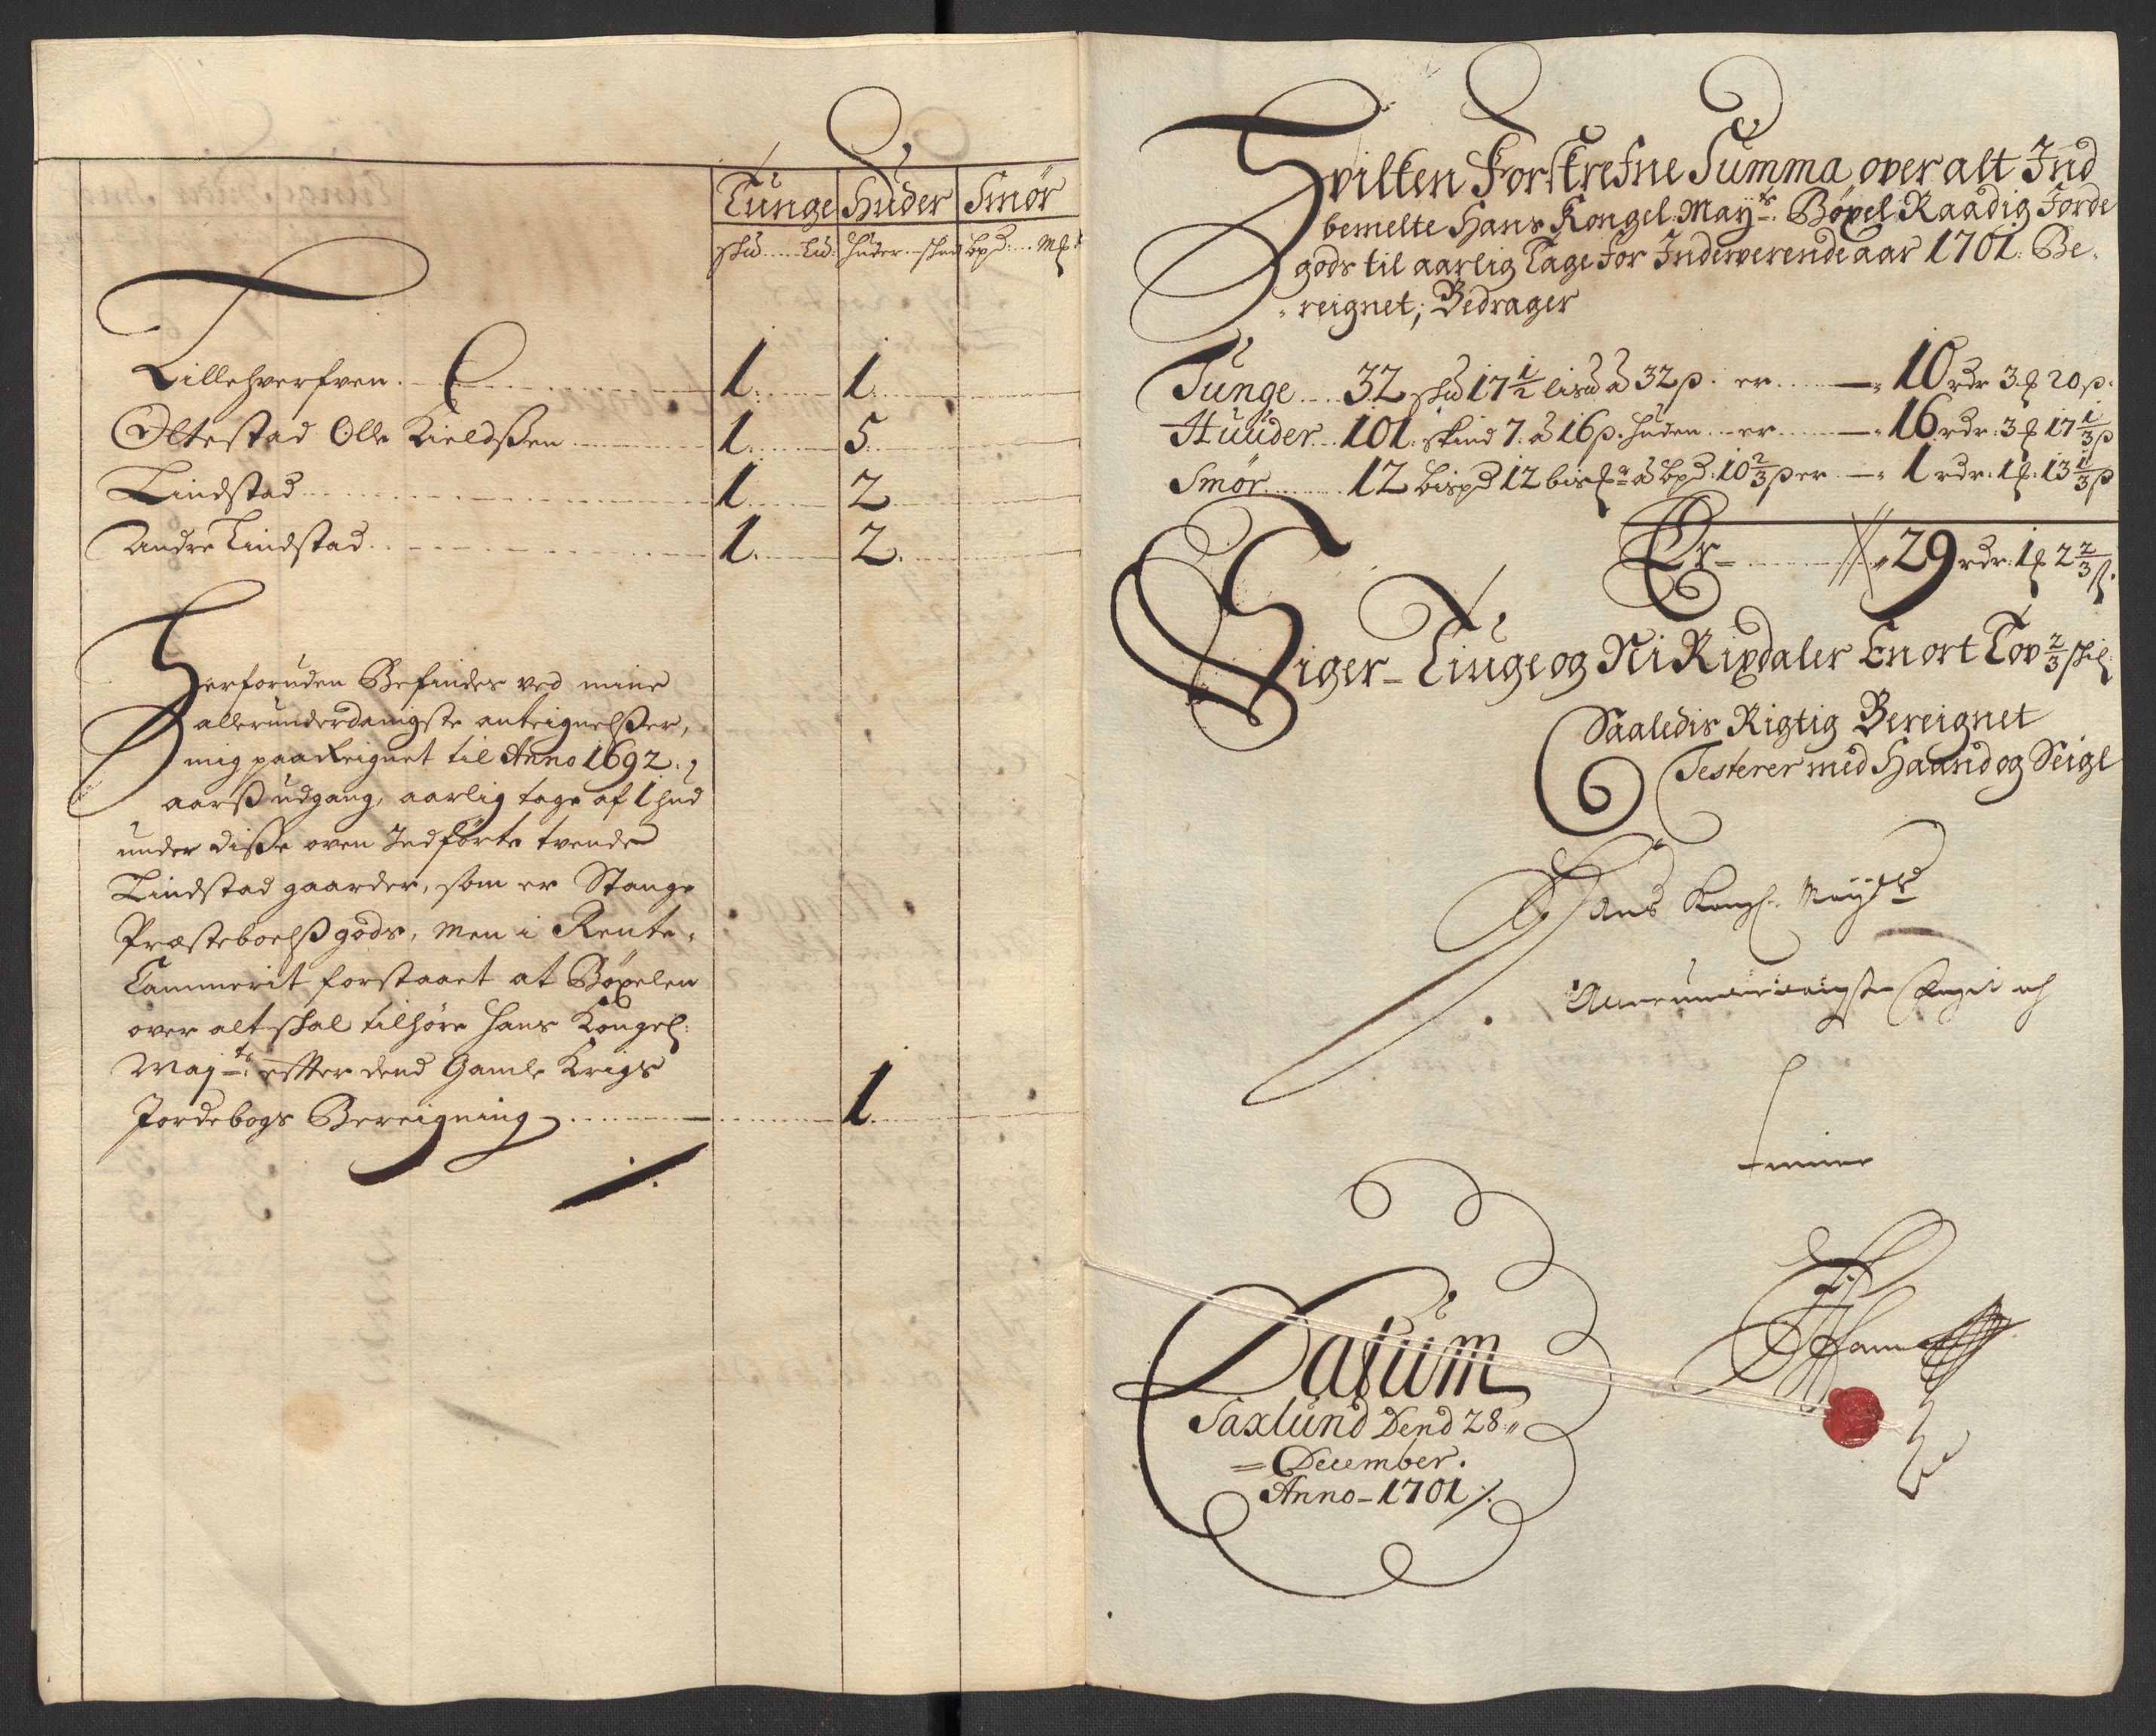 Tunge Huder Smör
skd lid: huder skind bpd: Mk
Lillehverfven 1 1
Oltestad Olle Kieldsßen 1 5
Lindstad 1 2
Andre Lindstad 1 2
Herforuden Befindes ved mine
allerunderdanigste anteignelsßer,
mig paa Reignet til Anno 1692
aarsß udgang, aarlig tage af 1 hud
under disße oven Indförte tvende
Lindstad gaarder, som er Stange
Præsteboelsß gods, Men i Rente
Cammerit forstaaet at Böxelen
over alt skal tilhöre Hans Kongel:
May:ts efter dend Gamle Krigs
Jordebogs Bereigning 1
Hvilken Forskrefne Summa over alt Ind
bemelte Hans Kongel: Mayts: Böxel Raadig Jorde
gods til aarlig Tage for Indeverende aar 1701 Be
reignet, Bedrager
Tunge 32 skd 17 1/2 lisd á 32 ß. er 10 rdr 3 ℔ 20 ß.
Huuder 101 skind 7 á 16 ß. huden er 16 rdr. 3 ℔ 17 1/3 ß
Smör 12 bispd 12 á bpd: 10 2/3 ß er 1 rdr. 1 ℔. 13 1/3 ß
Er 29 rdr. 1 ℔ 2 2/3 ß.
Siger Tiuge og Ni Rixdaler En ort Tov 2/3 skil
Saaledis Rigtig Bereignet
Testerer med Haand og Seigl
Hans Kongl: Mayts
Allerunderdanigste
tiener
Datum
Saxlund Dend 28
December.
Anno 1701